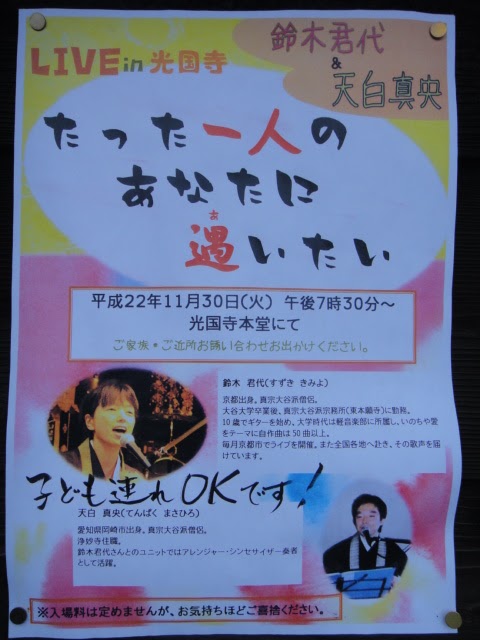 LIVE in 光国寺
鈴木君代
&
天白真央
たった一人の
あなたに
遇いたい
あ
平成22年11月30日(火) 午後7時30分～
光国寺本堂にて
ご家族・ご近所お誘い合わせお出かけください。
鈴木 君代(すずき きみよ)
京都出身。真宗大谷派僧侶。
大谷大学卒業後、真宗大谷派宗務所(東本願寺)に勤務。
10歳でギターを始め、大学時代は軽音楽部に所属し、いのちや愛
をテーマに自作曲は50曲以上。
毎月京都市でライブを開催。また全国各地へ赴き、その歌声を届
けています。
子ども連れOKです！
天白 真央(てんぱく まさひろ)
愛知県岡崎市出身。真宗大谷派僧侶。
浄妙寺住職。
鈴木君代さんとのユニットではアレンジャー・シンセサイザー奏者
として活躍。
※入場料は定めませんが、お気持ちほどご喜捨ください。